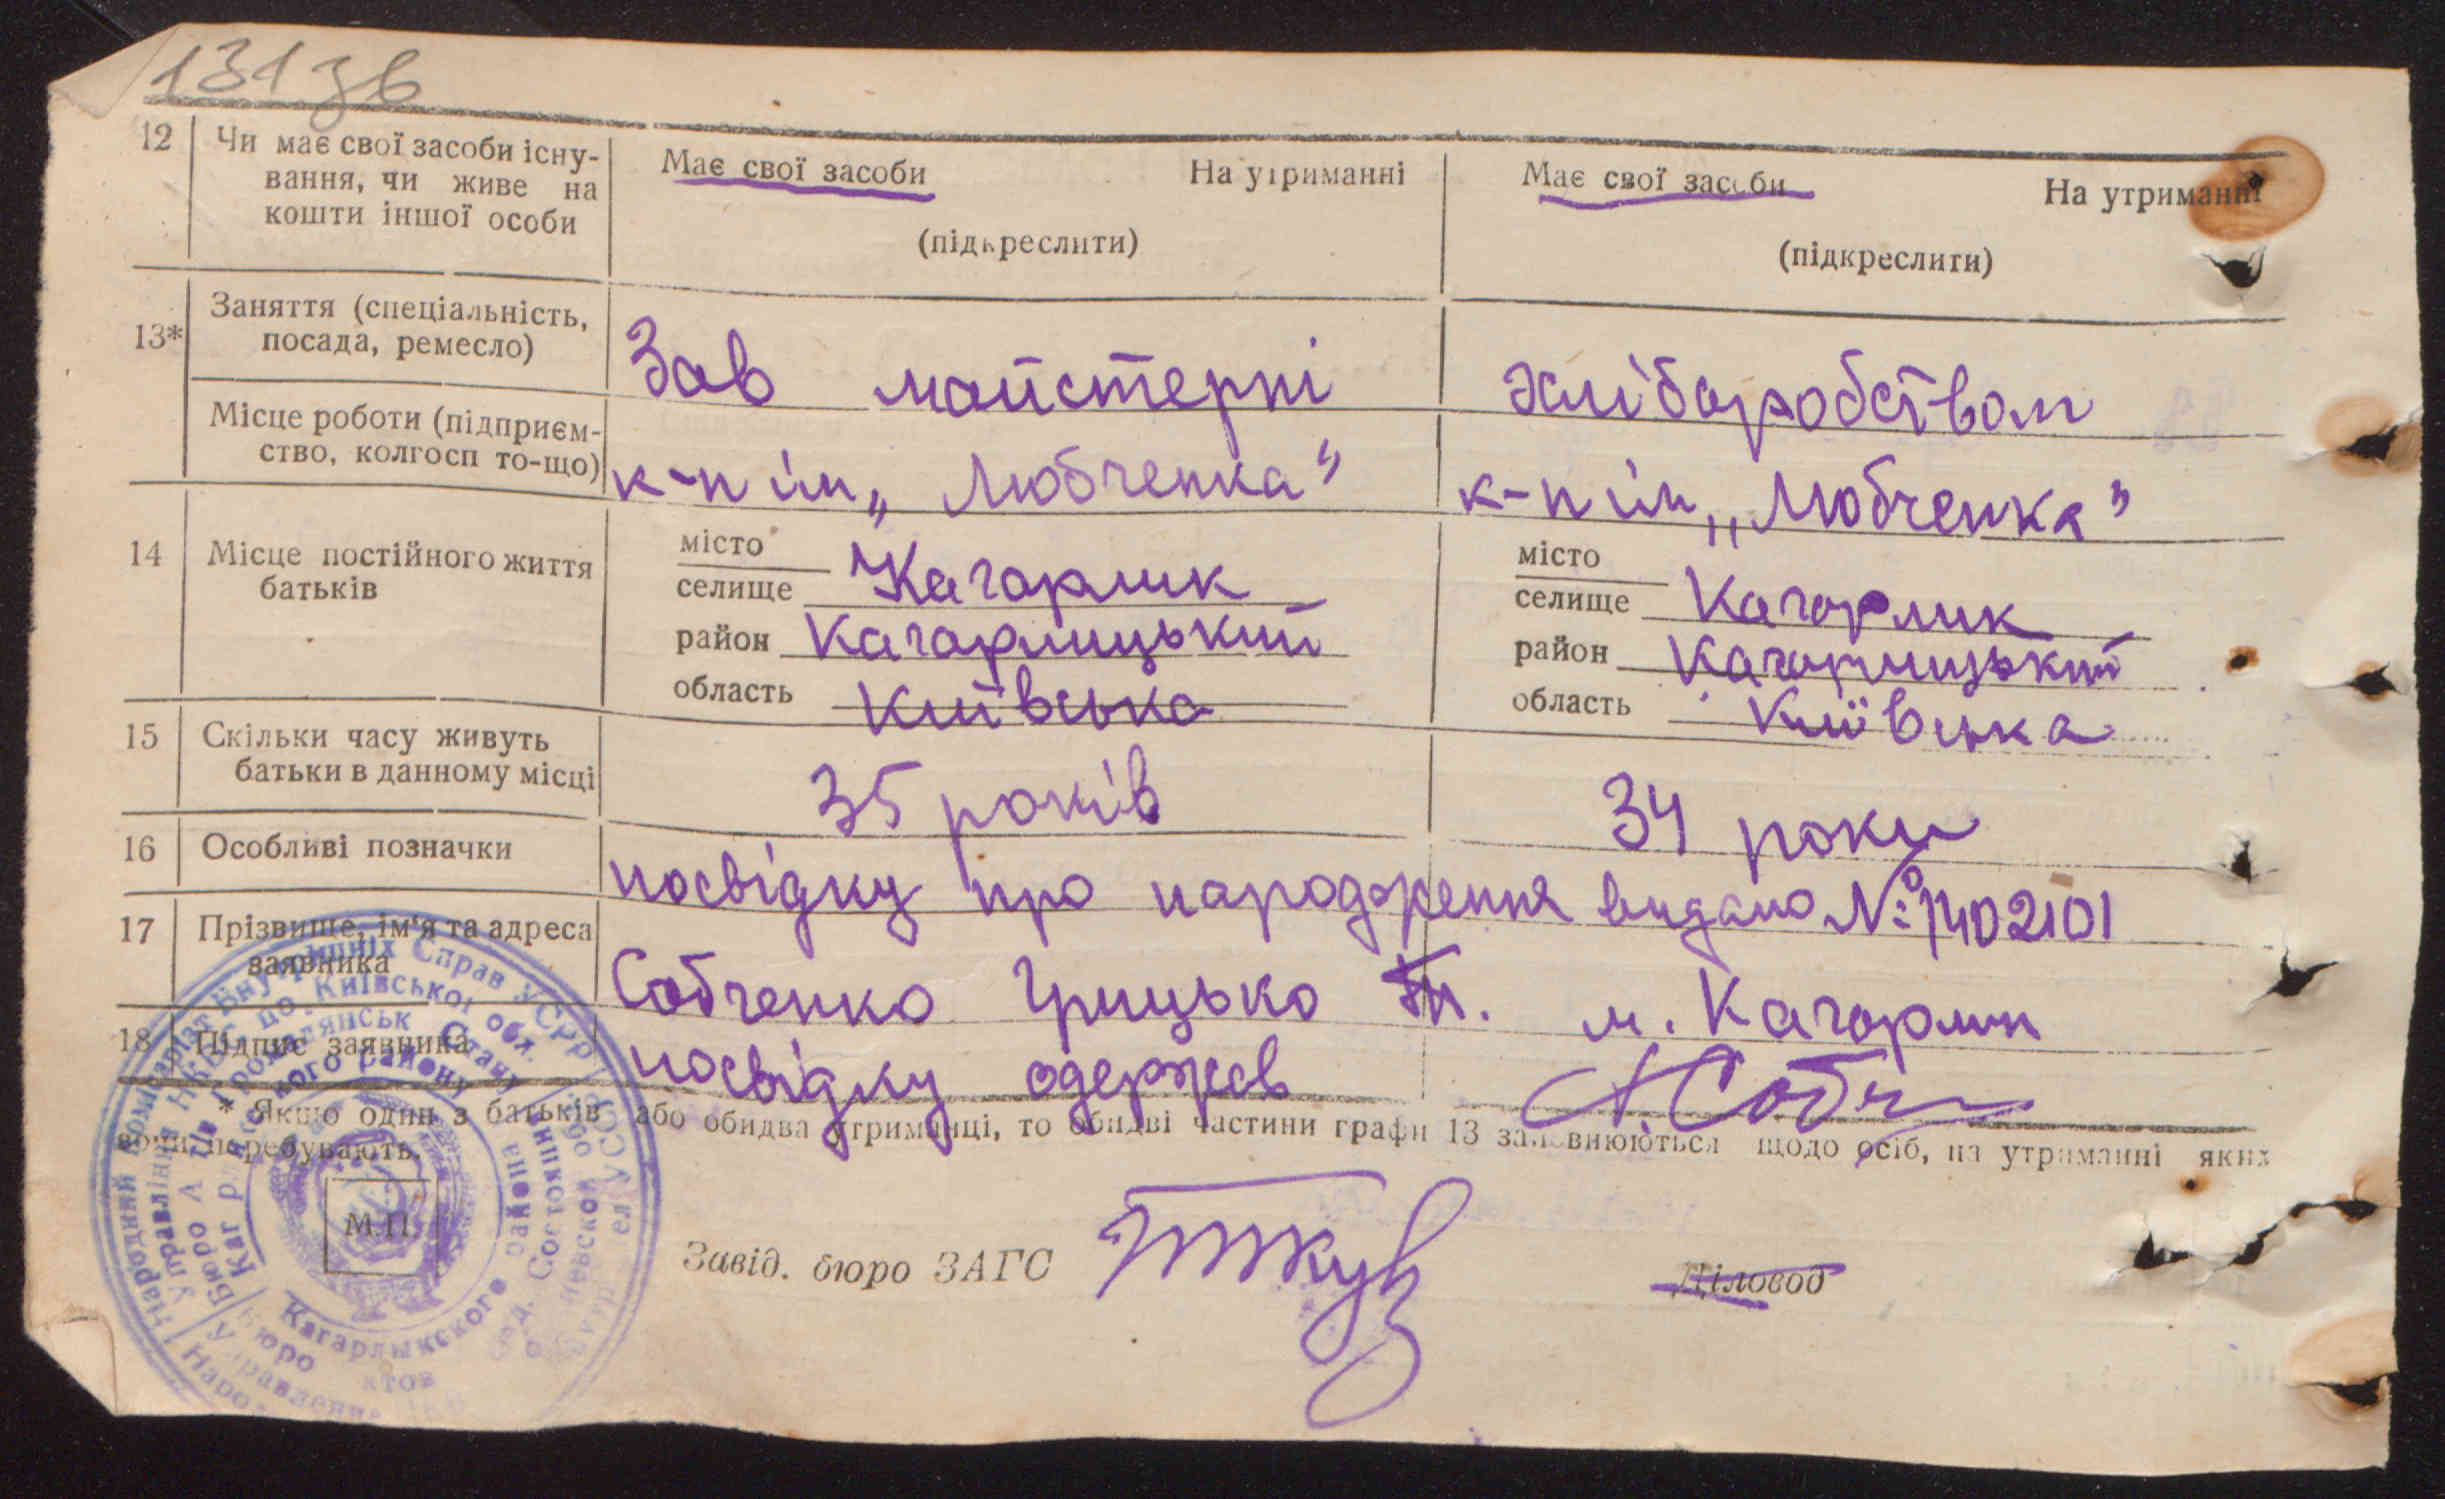 131зв
12 Чи має свої засоби існу-
вання, чи живе на
кошти іншої особи
Має свої засоби На утриманні
(підкреслити)
Має свої засоби На утриманні
(підкреслити)
13* Заняття (спеціальність,
посада, ремесло)
Зав майстерні
хліборобством
Місце роботи (підприєм-
ство, колгосп то-що)
к-п ім „Любченка"
к-п ім „Любченка"
14 Місце постійного життя
батьків
місто
селище Кагарлик
район Кагарлицький
область Київська
місто
селище Кагарлик
район Кагарлицький
область Київська
15 Скільки часу живуть
батьки в данному місці
35 років
34 роки
16 Особливі позначки
посвідку про народження видано № 1402101
17 Прізвище, ім'я та адреса
заявника
Собченко Грицько м. Кагарлик
18 Підпис заявника
посвідку одержав
* Якщо один з батьків або обидва утриманці, то обидві частини графи 13 заповнюються щодо осіб, на утриманні яких
вони перебувають.
М.П.
Завід. бюро ЗАГС
Діловод
Народний Комісаріат Внутрішніх Справ УСРР
Управління НКВС по Київської обл.
Кагарлыкского района